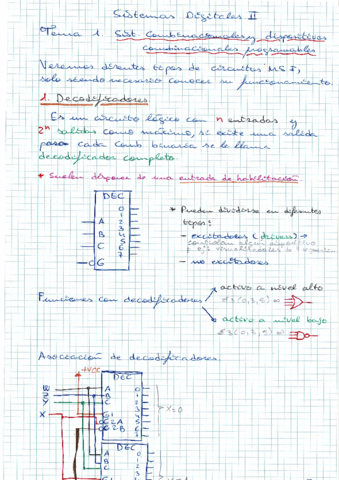 Sistemas Digitales II
Tema 1 Sist Combinacionales y dispositivos
combinacionales programables
Veremos distintos tipos de circuitos MSI,
solo siendo necesario conocer su funcionamiento.
1. Decodificadores
Es un circuito lógico con n entradas y
2ⁿ salidas como máximo, si existe una salida
para cada comb binaria se le llama
decodificador completo.
* Suelen disponer de una entrada de habilitación
DEC
0
1
A 2
3
B 4
5
C 6
7
G
* Pueden dividirse en diferentes
tipos:
- excitadores (drivers) →
controlan algún dispositivo
- no excitadores
Funciones con decodificadores
activo a nivel alto
activo a nivel bajo
Asociación de decodificadores
+Vcc
DEC
W A 0
Z B 1
Y C 2
3
X G1 4
G2A 5
G2B 6
7
X=0
DEC
A 0
B 1
C 2
3